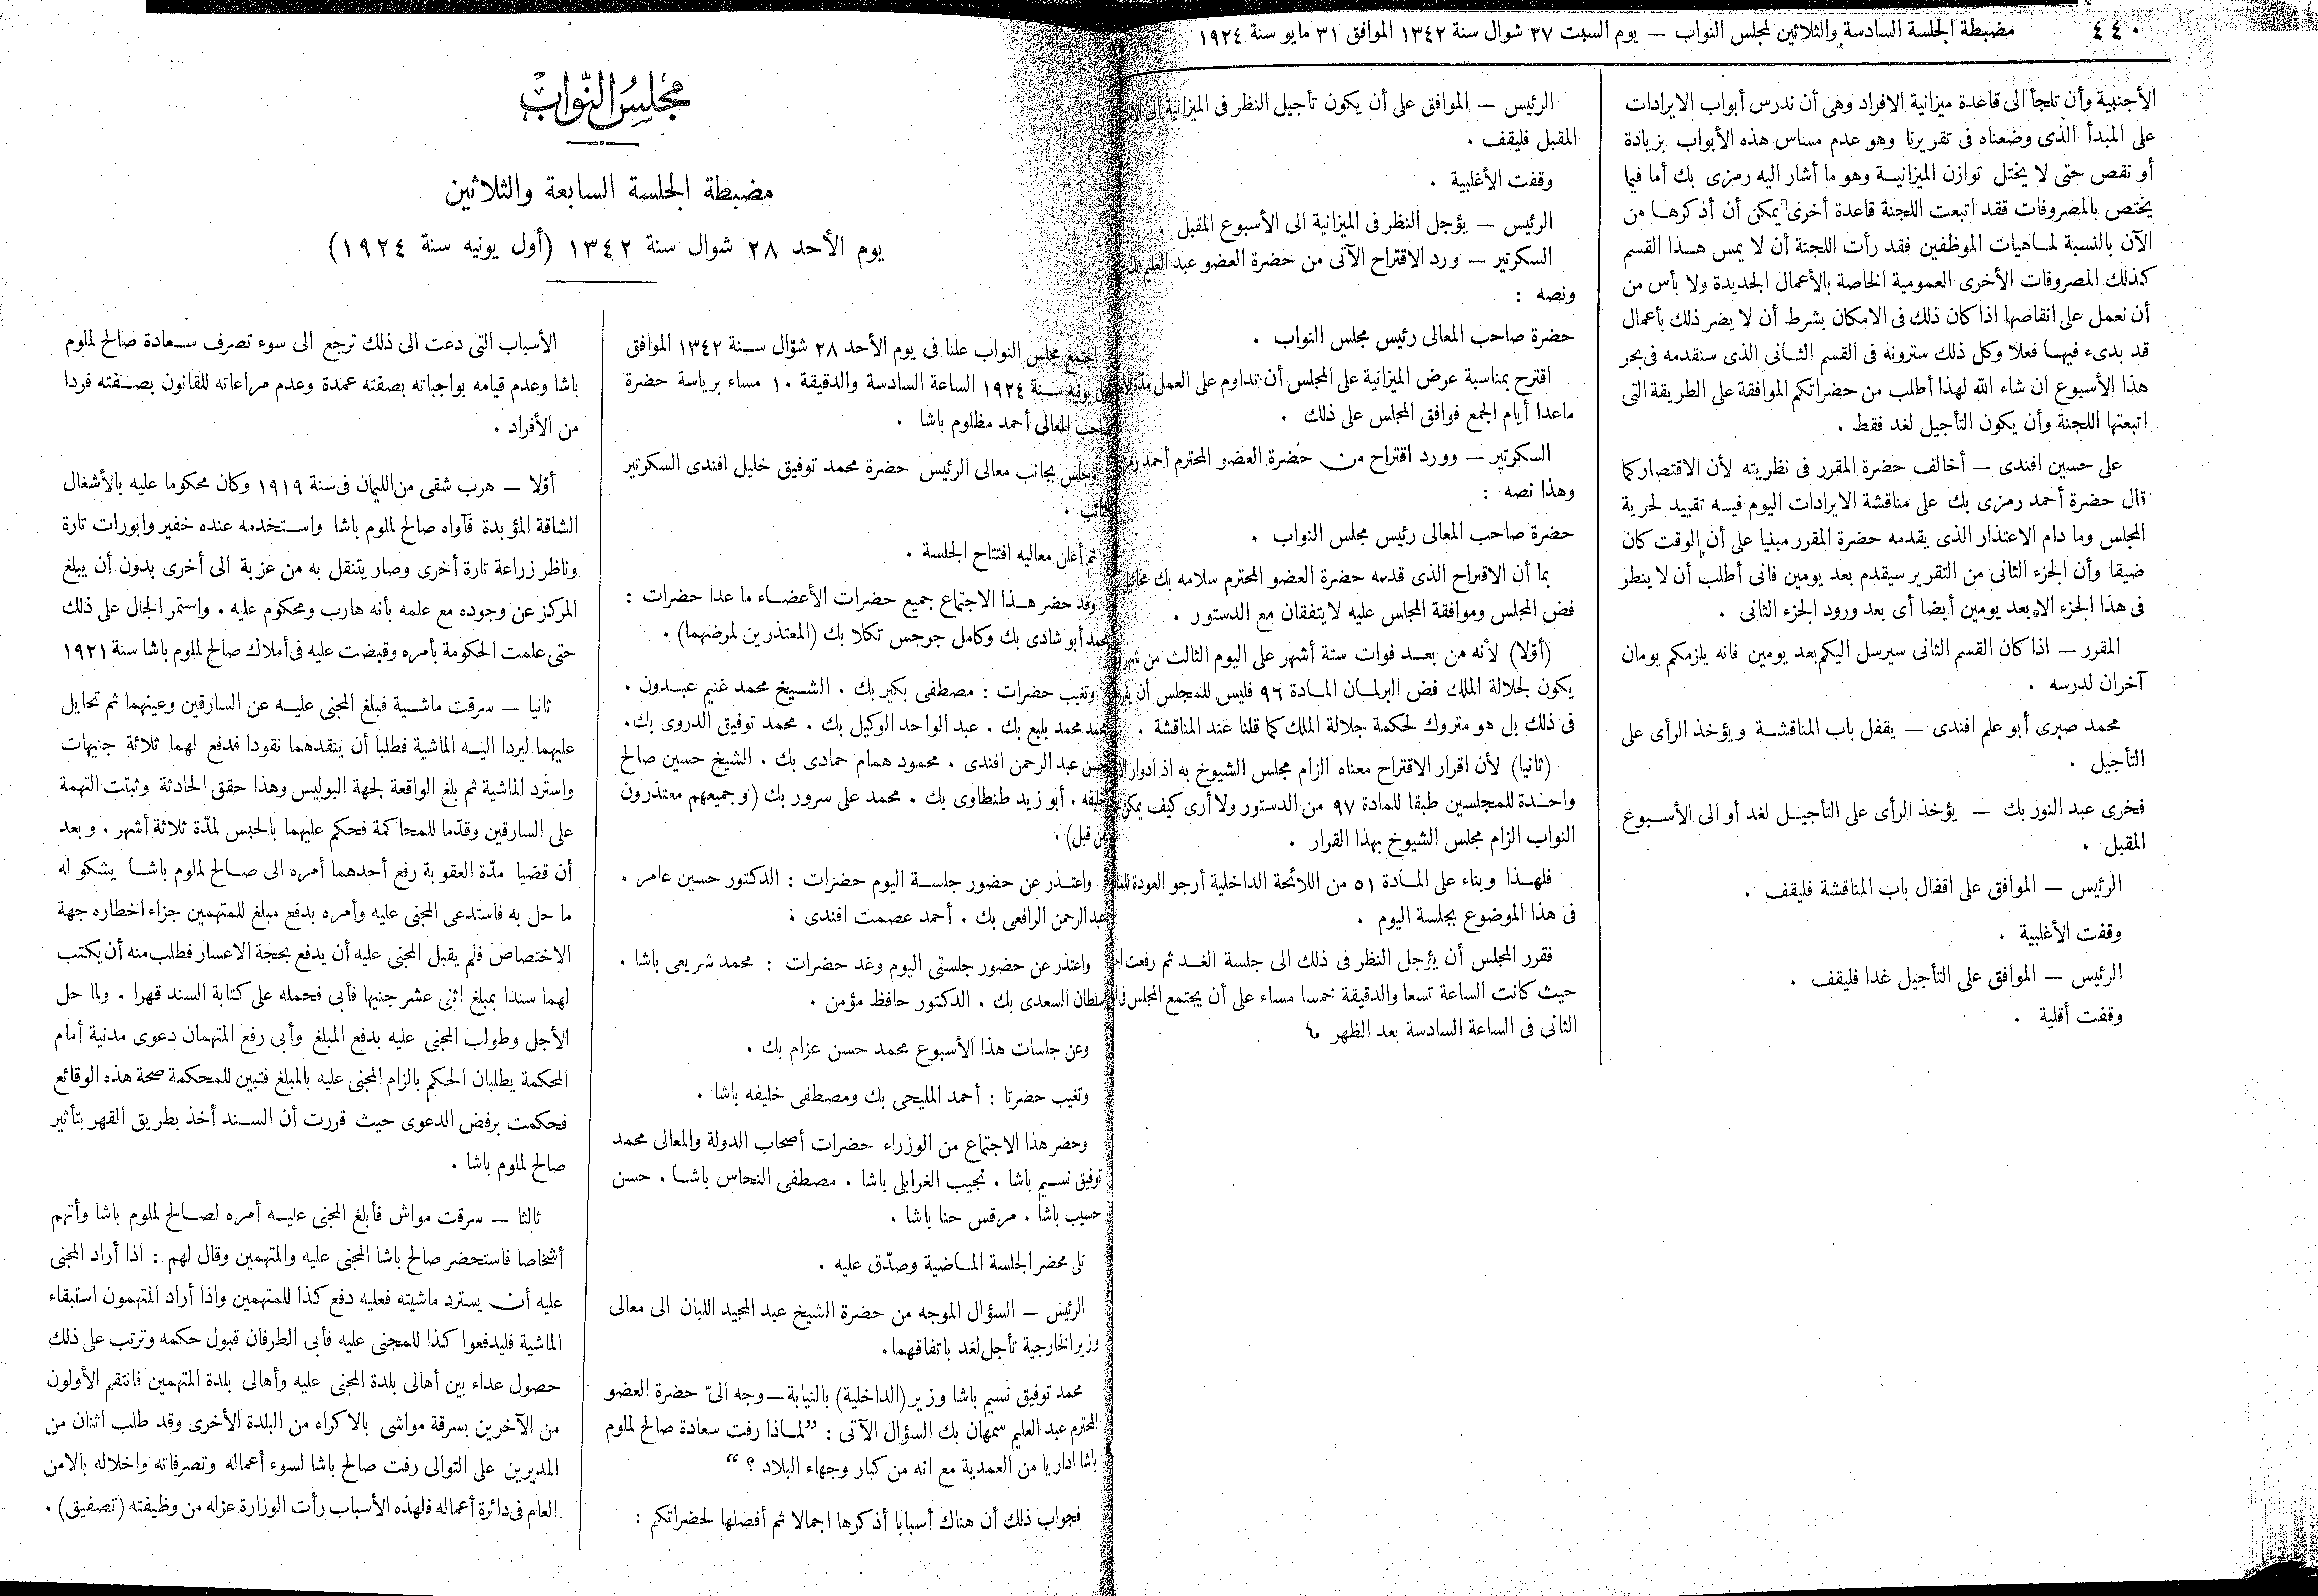 ٤٤٠
مضبطة الجلسة السادسة والثلاثين لمجلس النواب — يوم السبت ٢٧ شوال سنة ١٣٤٢ الموافق ٣١ مايو سنة ١٩٢٤
الأجنبية وأن تلجأ الى قاعدة ميزانية الافراد وهى أن ندرس أبواب الايرادات
على المبدأ الذى وضعناه فى تقريرنا وهو عدم مساس هذه الأبواب بزيادة
أو نقص حتى لا يختل توازن الميزانيــة وهو ما أشار اليه رمزى بك أما فيما
يختص بالمصروفات فقد اتبعت اللجنة قاعدة أخرى يمكن أن أذكرهــا من
الآن بالنسبة لمــاهيات الموظفين فقد رأت اللجنة أن لا يمس هــذا القسم
كذلك المصروفات الأخرى العمومية الخاصة بالأعمال الجديدة ولا بأس من
أن نعمل على انقاصها اذا كان ذلك فى الامكان بشرط أن لا يضر ذلك بأعمال
قد بدىء فيهــا فعلا وكل ذلك سترونه فى القسم الثــانى الذى سنقدمه فى بحر
هذا الأسبوع ان شاء الله لهذا أطلب من حضراتكم الموافقة على الطريقة التى
اتبعتها اللجنة وأن يكون التأجيل لغد فقط .
على حسين افندى — أخالف حضرة المقرر فى نظريته لأن الاقتصار كما
قال حضرة أحمد رمزى بك على مناقشة الايرادات اليوم فيــه تقييد لحرية
المجلس وما دام الاعتذار الذى يقدمه حضرة المقرر مبنيا على أن الوقت كان
ضيقا وأن الجزء الثانى من التقرير سيقدم بعد يومين فانى أطلب أن لا ينظر
فى هذا الجزء الا بعد يومين أيضا أى بعد ورود الجزء الثانى .
المقرر — اذا كان القسم الثانى سيرسل اليكم بعد يومين فانه يلزمكم يومان
آخران لدرسه .
محمد صبرى أبو علم افندى — يقفل باب المناقشــة ويؤخذ الرأى على
التأجيل .
فخرى عبد النور بك — يؤخذ الرأى على التأجيــل لغد أو الى الأســبوع
المقبل .
الرئيس — الموافق على اقفال باب المناقشة فليقف .
وقفت الأغلبية .
الرئيس — الموافق على التأجيل غدا فليقف .
وقفت أقلية .
الرئيس — الموافق على أن يكون تأجيل النظر فى الميزانية الى
المقبل فليقف .
وقفت الأغلبية .
الرئيس — يؤجل النظر فى الميزانية الى الأسبوع المقبل .
السكرتير — ورد الاقتراح الآتى من حضرة العضو عبد العليم بك
ونصه :
حضرة صاحب المعالى رئيس مجلس النواب .
اقترح بمناسبة عرض الميزانية على المجلس أن تداوم على العمل مدّة
ماعدا أيام الجمع فوافق المجلس على ذلك .
السكرتير — وورد اقتراح من حضرة العضو المحترم أحمد رمزى
وهذا نصه :
حضرة صاحب المعالى رئيس مجلس النواب .
بما أن الاقتراح الذى قدمه حضرة العضو المحترم سلامه بك مخائيل
فض المجلس وموافقة المجلس عليه لا يتفقان مع الدستور .
(أوّلا) لأنه من بعــد فوات ستة أشهر على اليوم الثالث من شهر
يكون لجلالة الملك فض البرلمــان المــادة ٩٦ فليس للمجلس أن يقرر
فى ذلك بل هو متروك لحكمة جلالة الملك كما قلنا عند المناقشة .
(ثانيا) لأن اقرار الاقتراح معناه الزام مجلس الشيوخ به اذ ادوار
واحــدة للمجلسين طبقا للمادة ٩٧ من الدستور ولا أرى كيف يمكن
النواب الزام مجلس الشيوخ بهذا القرار .
فلهــذا وبناء على المــادة ٥١ من اللائحة الداخلية أرجو العودة
فى هذا الموضوع بجلسة اليوم .
فقرر المجلس أن يؤجل النظر فى ذلك الى جلسة الغــد ثم رفعت
حيث كانت الساعة تسعا والدقيقة خمسا مساء على أن يجتمع المجلس فى
الثانى فى الساعة السادسة بعد الظهر
مجلس النواب
مضبطة الجلسة السابعة والثلاثين
يوم الأحد ٢٨ شوال سنة ١٣٤٢ (أول يونيه سنة ١٩٢٤)
اجتمع مجلس النواب علنا فى يوم الأحد ٢٨ شوّال ســنة ١٣٤٢ الموافق
أول يونيه ســنة ١٩٢٤ الساعة السادسة والدقيقة ١٠ مساء برياسة حضرة
صاحب المعالى أحمد مظلوم باشا .
وجلس بجانب معالى الرئيس حضرة محمد توفيق خليل افندى السكرتير
النائب .
ثم أعلن معاليه افتتاح الجلسة .
وقد حضر هــذا الاجتماع جميع حضرات الأعضــاء ما عدا حضرات :
محمد أبو شادى بك وكامل جرجس تكلا بك (المعتذرين لمرضهما) .
وتغيب حضرات : مصطفى بكير بك . الشــيخ محمد غنيم عبــدون .
محمد محمد بليع بك . عبد الواحد الوكيل بك . محمد توفيق الدروى بك .
حسن عبد الرحمن افندى . محمود همام حمادى بك . الشيخ حسين صالح
خليفه . أبو زيد طنطاوى بك . محمد على سرور بك (وجميعهم معتذرون
من قبل) .
واعتــذر عن حضور جلســة اليوم حضرات : الدكتور حسين عامر .
عبد الرحمن الرافعى بك . أحمد عصمت افندى :
واعتذر عن حضور جلستى اليوم وغد حضرات : محمد شريعى باشا .
سلطان السعدى بك . الدكتور حافظ مؤمن .
وعن جلسات هذا الأسبوع محمد حسن عزام بك .
وتغيب حضرتا : أحمد المليحى بك ومصطفى خليفه باشا .
وحضر هذا الاجتماع من الوزراء حضرات أصحاب الدولة والمعالى محمد
توفيق نســيم باشا . نجيب الغرابلى باشا . مصطفى النحاس باشــا . حسن
حسيب باشا . مرقس حنا باشا .
تلى محضر الجلسة المــاضية وصدّق عليه .
الرئيس — السؤال الموجه من حضرة الشيخ عبد المجيد اللبان الى معالى
وزير الخارجية تأجل لغد باتفاقهما .
محمد توفيق نسيم باشا وزير (الداخلية) بالنيابة — وجه الىّ حضرة العضو
المحترم عبد العليم سمهان بك السؤال الآتى : ”لمــاذا رفت سعادة صالح لملوم
باشا اداريا من العمدية مع انه من كبار وجهاء البلاد ؟“
فجواب ذلك أن هناك أسبابا أذكرها اجمالا ثم أفصلها لحضراتكم :
الأسباب التى دعت الى ذلك ترجع الى سوء تصرف ســعادة صالح لملوم
باشا وعدم قيامه بواجباته بصفته عمدة وعدم مراعاته للقانون بصــفته فردا
من الأفراد .
أوّلا — هرب شقى من الليمان فى سنة ١٩١٩ وكان محكوما عليه بالأشغال
الشاقة المؤبدة فآواه صالح لملوم باشا واســتخدمه عنده خفير وابورات تارة
وناظر زراعة تارة أخرى وصار يتنقل به من عزبة الى أخرى بدون أن يبلغ
المركز عن وجوده مع علمه بأنه هارب ومحكوم عليه . واستمر الحال على ذلك
حتى علمت الحكومة بأمره وقبضت عليه فى أملاك صالح لملوم باشا سنة ١٩٢١
ثانيا — سرقت ماشــية فبلغ المجنى عليــه عن السارقين وعينهما ثم تحايل
عليهما ليردا اليــه الماشية فطلبا أن ينقدهما نقودا فدفع لهما ثلاثة جنيهات
واسترد الماشية ثم بلغ الواقعة لجهة البوليس وهذا حقق الحادثة وثبتت التهمة
على السارقين وقدّما للمحاكمة فحكم عليهما بالحبس لمدّة ثلاثة أشهر . وبعد
أن قضيا مدّة العقوبة رفع أحدهما أمره الى صــالح لملوم باشــا يشكو له
ما حل به فاستدعى المجنى عليه وأمره بدفع مبلغ للمتهمين جزاء اخطاره جهة
الاختصاص فلم يقبل المجنى عليه أن يدفع بحجة الاعسار فطلب منه أن يكتب
لهما سندا بمبلغ اثنى عشر جنيها فأبى فحمله على كتابة السند قهرا . ولما حل
الأجل وطولب المجنى عليه بدفع المبلغ وأبى رفع المتهمان دعوى مدنية أمام
المحكمة يطلبان الحكم بالزام المجنى عليه بالمبلغ فتبين للمحكمة صحة هذه الوقائع
فحكمت برفض الدعوى حيث قررت أن الســند أخذ بطريق القهر بتأثير
صالح لملوم باشا .
ثالثا — سرقت مواش فأبلغ المجنى عليــه أمره لصــالح لملوم باشا وأتهم
أشخاصا فاستحضر صالح باشا المجنى عليه والمتهمين وقال لهم : اذا أراد المجنى
عليه أن يسترد ماشيته فعليه دفع كذا للمتهمين واذا أراد المتهمون استبقاء
الماشية فليدفعوا كذا للمجنى عليه فأبى الطرفان قبول حكمه وترتب على ذلك
حصول عداء بين أهالى بلدة المجنى عليه وأهالى بلدة المتهمين فانتقم الأولون
من الآخرين بسرقة مواشى بالاكراه من البلدة الأخرى وقد طلب اثنان من
المديرين على التوالى رفت صالح باشا لسوء أعماله وتصرفاته واخلاله بالامن
العام فى دائرة أعماله فلهذه الأسباب رأت الوزارة عزله من وظيفته (تصفيق) .